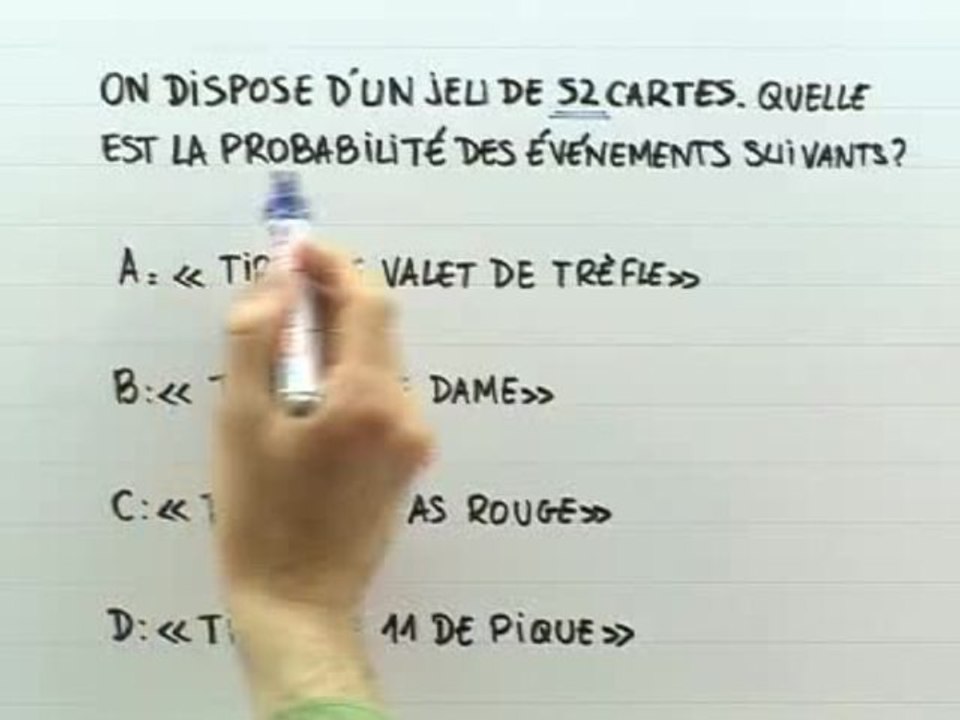 ON DISPOSE D'UN JEU DE 52 CARTES. QUELLE
EST LA PROBABILITÉ DES ÉVÉNEMENTS SUIVANTS?
A: « VALET DE TRÈFLE»
B:« DAME»
C:« AS ROUGE»
D:« 11 DE PIQUE»